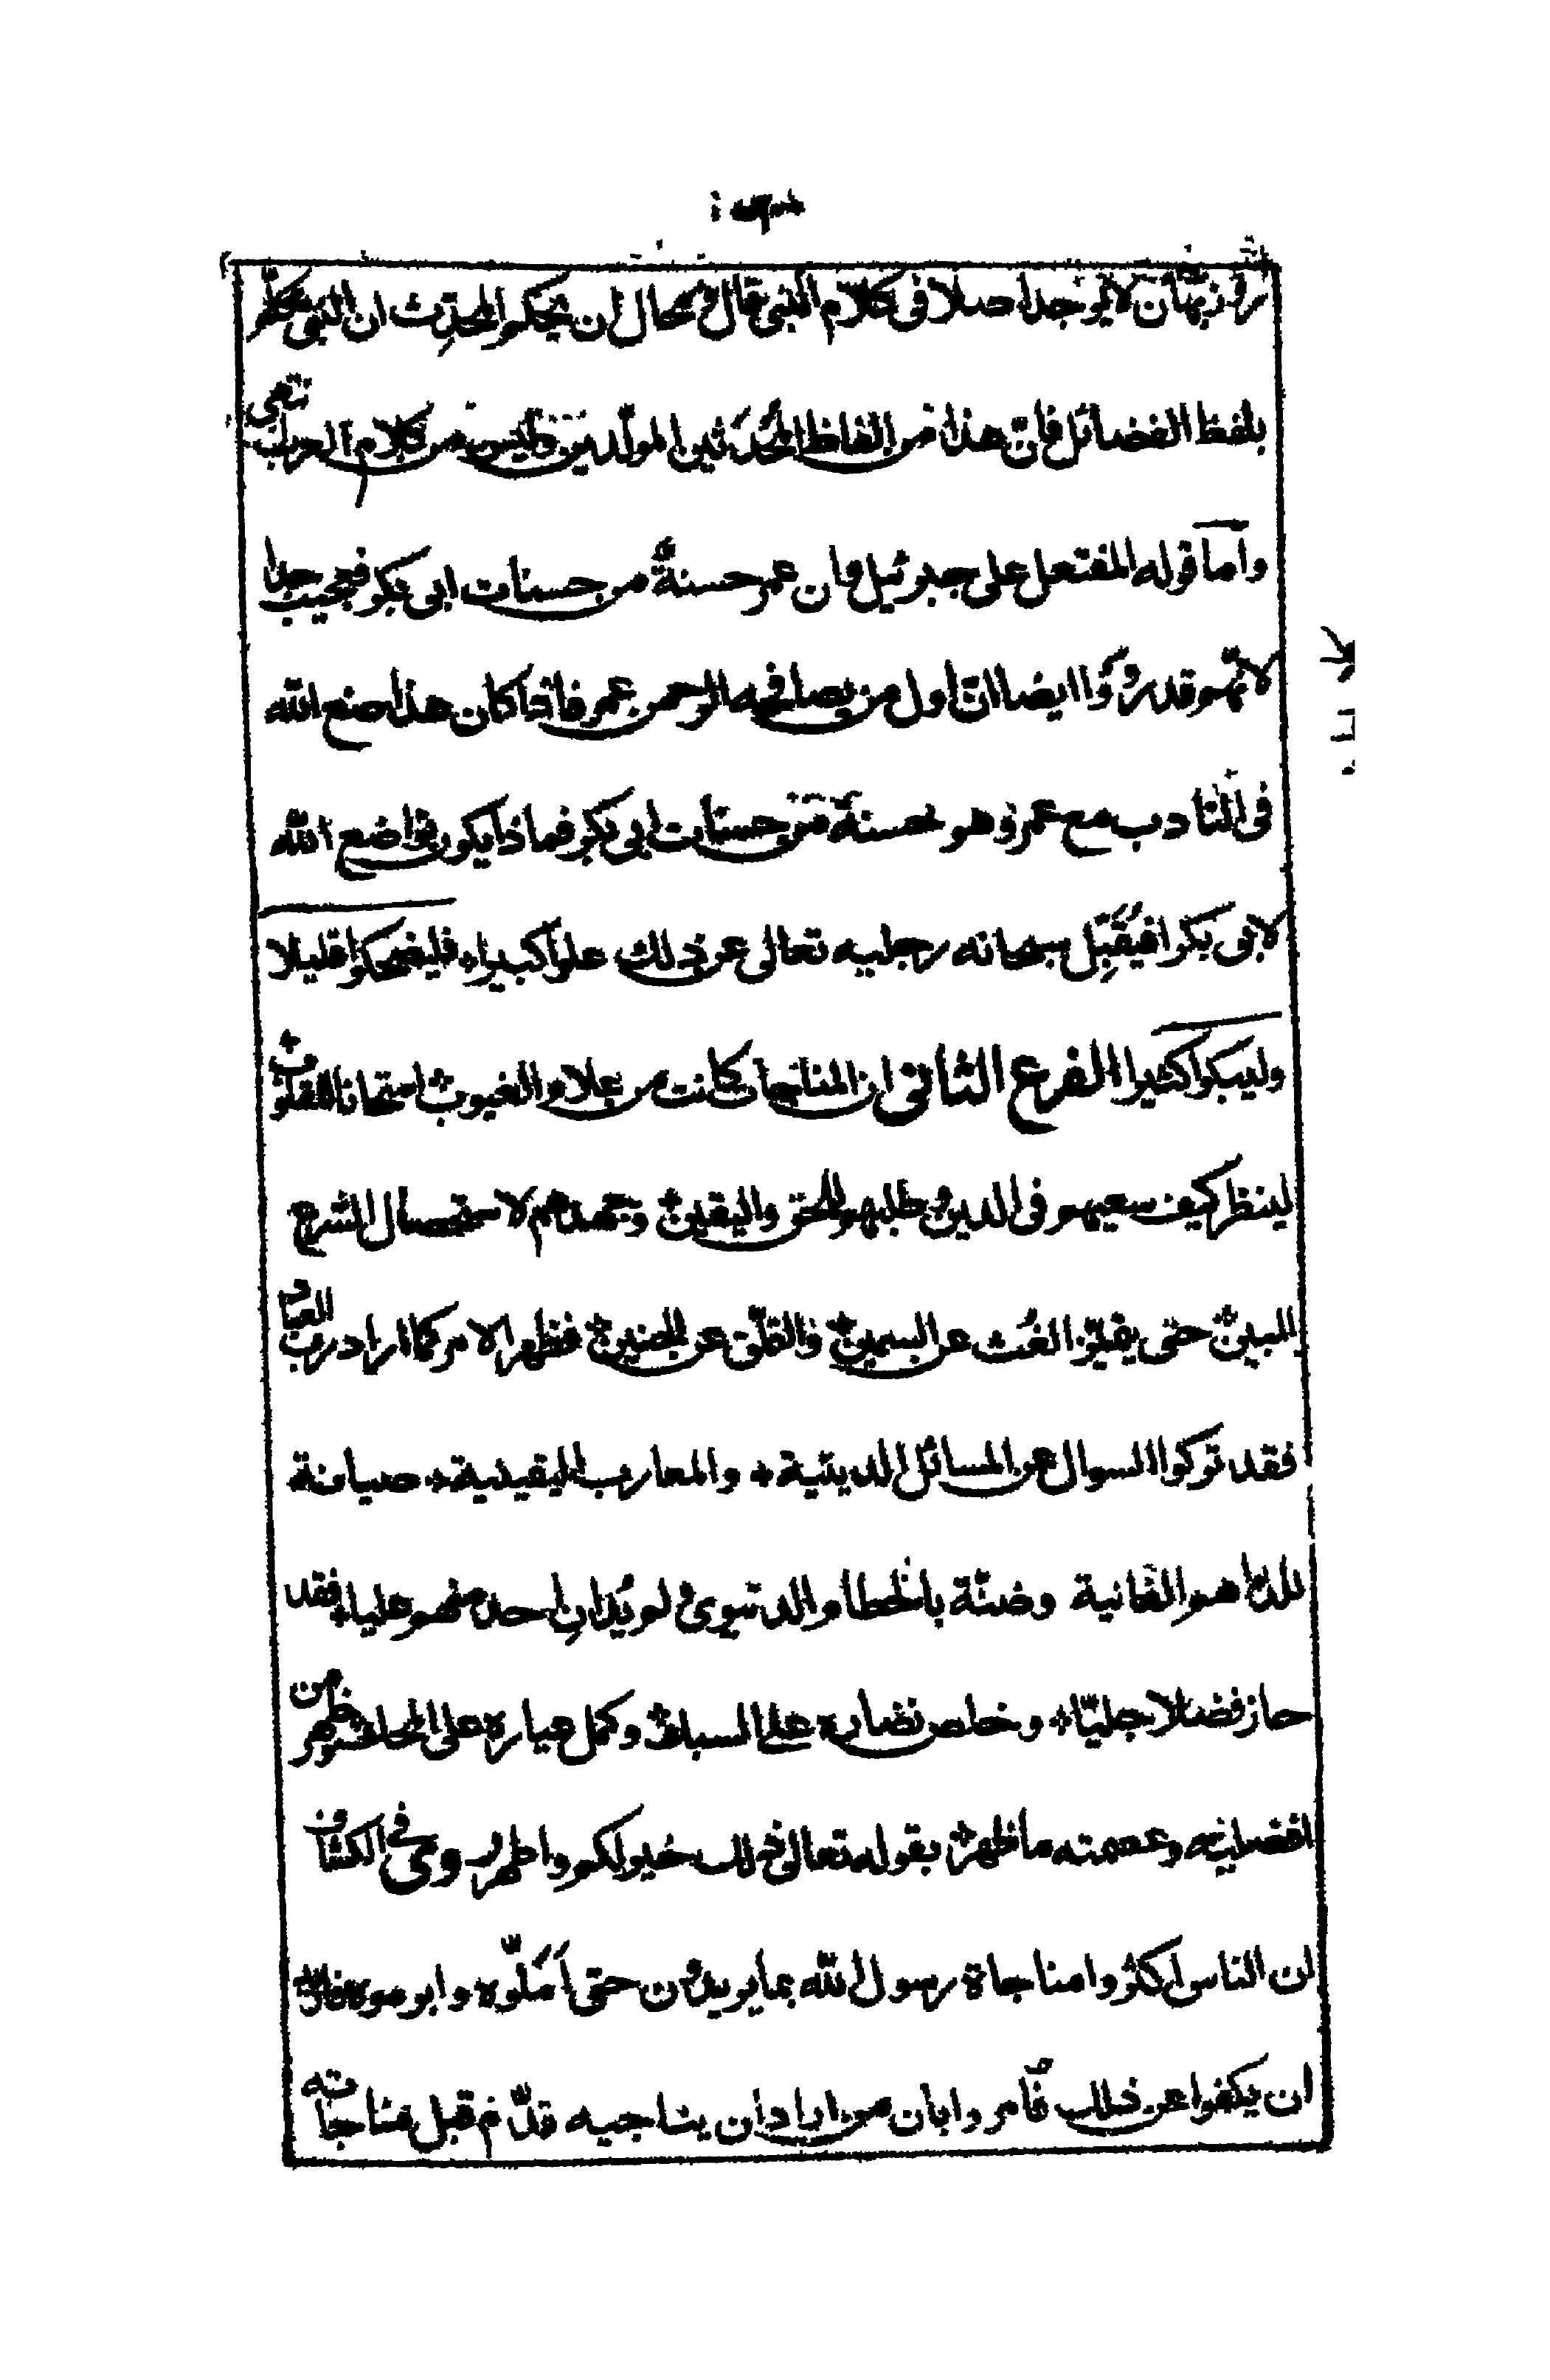 لا يوجد اصلا فى كلام النبى قال و محال ان يتكلم المحدِث ان النبى تكلم
بلفظ الفضائل فانّ هذا من الفاظ المُحدَثين المولّدين وليس من كلام العرب انتهى
واما قوله المفتعل على جبرئيل وان عمر حسنةٌ من حسنات ابى بكر فعجيب جدا
لانهم قد رووا ايضا انّ اول من يصافحه الرحمن عمر فاذا كان هذا صنع الله
فى التادب مع عمر و هو حسنة من حسنات ابى بكر فماذا يكون تواضع الله
لابى بكر افيُقَبِّل سبحانه رجليه تعالى عن ذلك علوا كبيرا فليضحكوا قليلا
وليبكوا كثيرا الفرع الثانى ان المناجات كانت من علام الغيوب امتحانا للقلوب
لينظر كيف سعيهم فى الدين و طلبهم للحق واليقين و جهدهم لاستحصال الشرع
المبين حتى يميّز الغث عن السمين فظهر الامر كما اراد رب العباد
فقد تركوا السوال عن المسائل الدينية والمعارب اليقينية صيانة
للدراهم الفانية وضنّة بالحطام الدنيوى و لم يُدانِ احد منهم عليا فقد
حاز فضلا جليّا و خلص نضاره على السباك و كمل عياره على المحك و ظهر من
افضليته وعصمته ما ظهر بقوله تعالى ذلك خير لكم واطهر وفى الكشاف
ان الناس اكثروا مناجاة رسول الله بما يريدون حتى اَمَلّوه وابرموه فاريد
ان يكفوا عن ذلك فامروا بان من اراد ان يناجيه قدّم قبل مناجاته